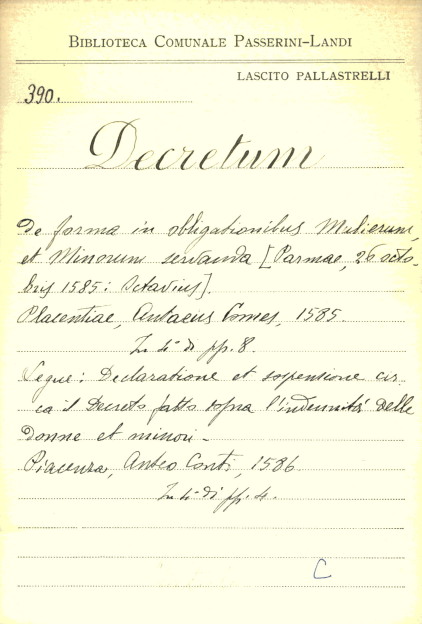 BIBLIOTECA COMUNALE PASSERINI-LANDI
LASCITO PALLASTRELLI
390.
Decretum
De forma in obligationibus Mulierum,
et Minorum servanda [Parmae, 26 octo-
bris 1585: Octavius].
Placentiae, Antaeus Comes, 1585.
In 4° di pp. 8.
Segue: Declaratione et sospensione cir-
ca il Decreto fatto sopra l'indennità delle
donne et minori -
Piacenza, Anteo Conti, 1586
In 4° di pp. 4.
C